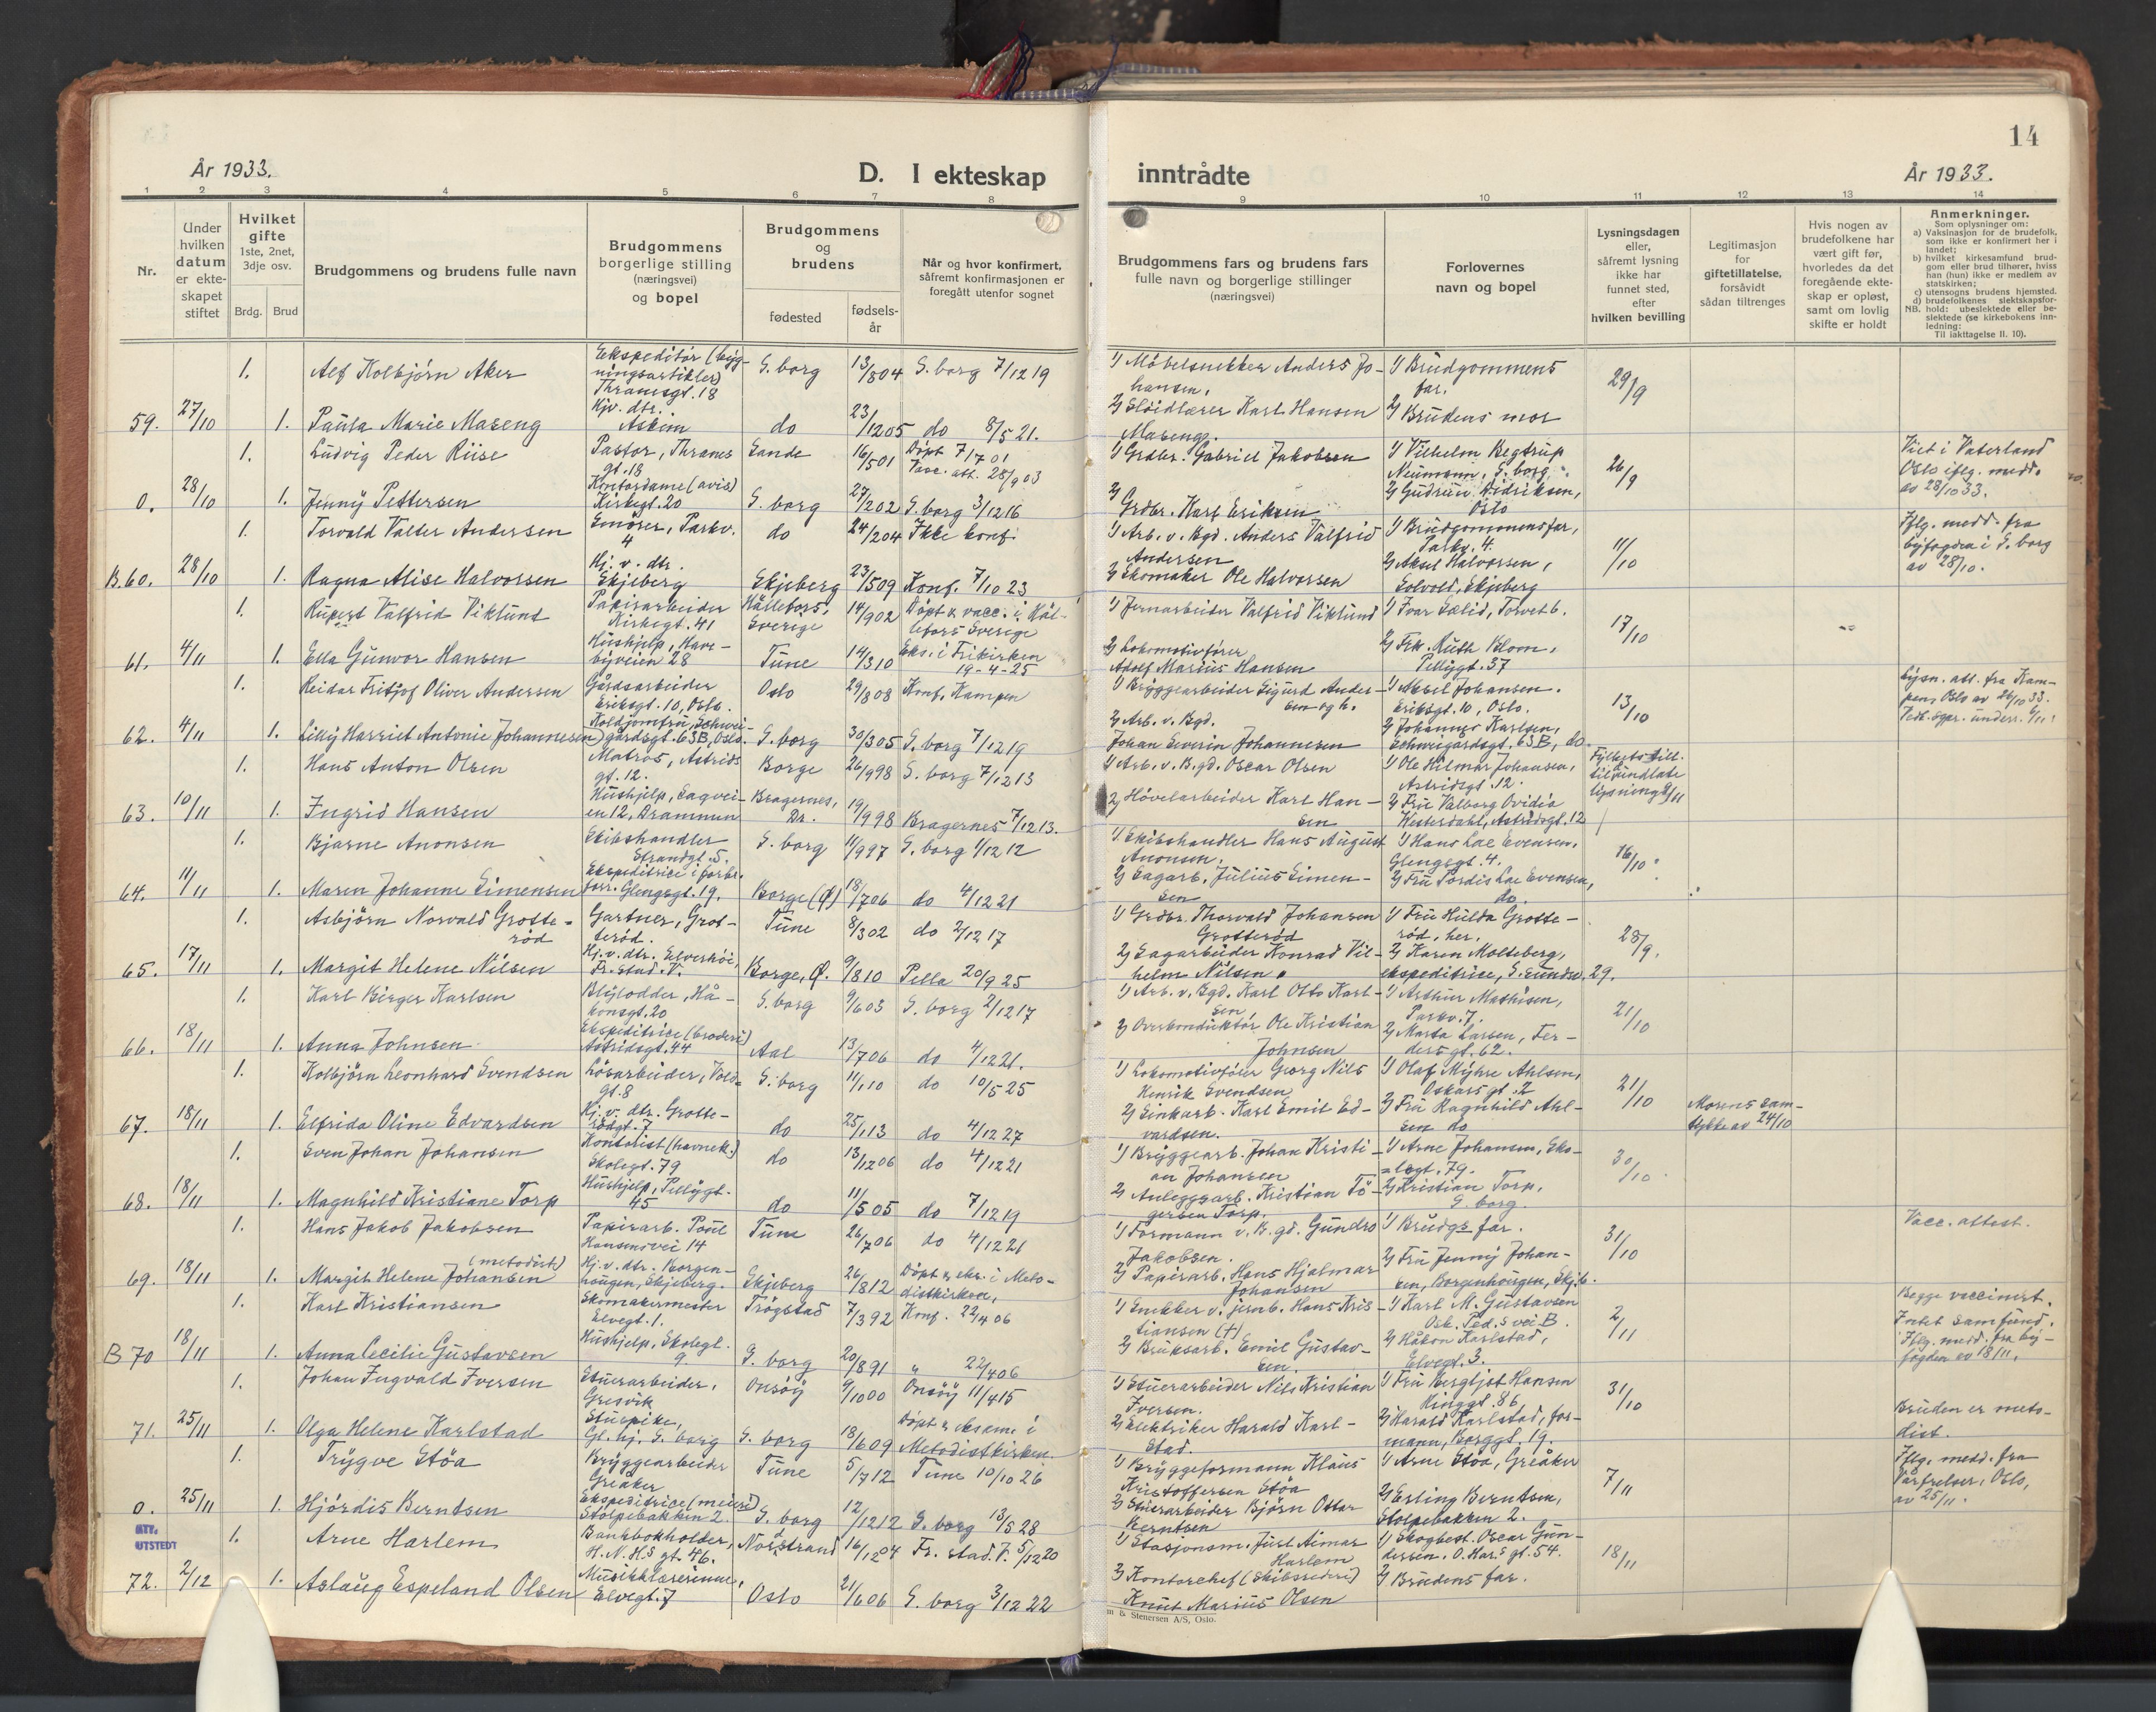 14
År 1933.
D. I ekteskap
inntrådte
År 1933.
1 2 3 4 5 6 7 8 9 10 11 12 13 14
Nr.
Under hvilken datum er ekte-skapet stiftet
Hvilket gifte 1ste, 2net, 3dje osv.
Brdg. Brud
Brudgommens og brudens fulle navn
Brudgommens borgerlige stilling (næringsvei) og bopel
Brudgommens og brudens
fødested
fødsels-år
Når og hvor konfirmert, såfremt konfirmasjonen er foregått utenfor sognet
Brudgommens fars og brudens fars fulle navn og borgerlige stillinger (næringsvei)
Forlovernes navn og bopel
Lysningsdagen eller, såfremt lysning ikke har funnet sted, efter hvilken bevilling
Legitimasjon for giftetillatelse, forsåvidt sådan tiltrenges
Hvis nogen av brudefolkene har vært gift før, hvorledes da det foregående ekte-skap er opløst, samt om lovlig skifte er holdt
Anmerkninger.
Som oplysninger om:
a) Vaksinasjon for de brudefolk, som ikke er konfirmert her i landet;
b) hvilket kirkesamfund brud-gom eller brud tilhører, hviss han (hun) ikke er medlem av statskirken;
c) utensogns brudens hjemsted.
d) brudefolkenes slektskapsfor-hold: ubeslektede eller be-slektede (se kirkebokens inn-ledning:
NB.
Til iakttagelse II. 10).
1. Alf Kolbjørn Aker Ekspeditør (byg-ningsartikler) Thranesgt. 18 S. borg 13/8 04 S. borg 7/12 19 1) Møbelsnekker Anders Jo-hansen. 1) Brudgommens far. 29/9
59. 27/10 1. Paula Marie Maseng Hjv. dtr. Askim do 23/12 05 do 8/5 21. 2) Sløidlærer Karl Hansen Maseng. 2) Brudens mor
1. Ludvig Peder Riise Pastor, Thranes gt. 18 Sande 16/5 01 Døpt 7/7 01 Vacc. att. 28/9 03 1) Grdbr. Gabriel Jakobsen 1) Vilhelm Begtrup Neumann, S. borg. 26/9 Viet i Vaterland Oslo iflg. medd. av 28/10 33.
0. 28/10 1. Jenny Pettersen Kontordame (avis) Kirkegt. 20 S. borg 27/2 02 S. borg 3/12 16 2) Grdbr. Karl Eriksen 2) Gudrun Didriksen, Oslo
1. Torvald Valter Andersen Smører, Parkv. 4 do 24/2 04 Ikke konf. 1) Arb. v. Bgd. Anders Valfrid Andersen 1) Brudgommens far, Parkv. 4. 11/10 Iflg. medd. fra byfogden i S. borg av 28/10.
B. 60. 28/10 1. Ragna Alise Halvorsen Hj. v. dtr. Skjeberg Skjeberg 23/5 09 Konf. 7/10 23 2) Skomaker Ole Halvorsen 2) Aksel Halvorsen, Solvold, Skjeberg
1. Rupert Valfrid Viklund Papirarbeider Kirkegt. 41 Hällefors, Sverige 14/9 02 Døpt & vacc. i Häl-lefors Sverige 1) Jernarbeider Valfrid Viklund 1) Ivar Sælid, Torvet 6. 17/10
61. 4/11 1. Ella Gunvor Hansen Hushjelp, Have-byveien 28 Tune 14/3 10 Eks. i Frikirken 19-4-25 2) Lokomotivfører Adolf Marius Hansen 2) Frk. Ruth Blom, Pellygt. 37
1. Reidar Fritjof Oliver Andersen Gårdsarbeider Eriksgt. 10, Oslo. Oslo 29/8 08 Konf. Kampen 1) Bryggearbeider Sigurd Ander-sen og h. 1) Aksel Johansen. Eriksgt. 10, Oslo. 13/10 Lysn. att. fra Kam-pen, Oslo av 26/10 33.
62. 4/11 1. Lilly Harriet Antonie Johannesen Koldjomfru, Schwei-gårdsgt. 63B, Oslo. S. borg 30/3 05 S. borg 7/12 19 2) Arb. v. Bgd. Johan Severin Johannesen 2) Johannes Karlsen, Schweigårdsgt. 63B, do.
1. Hans Anton Olsen Matros, Astrids gt. 12. Borge 26/9 98 S. borg 7/12 13 1) Arb. v. B.gd. Oscar Olsen 1) Ole Hilmar Johansen, Astridsgt. 12. Fylkets till. til undlate lysning 9/11
63. 10/11 1. Ingrid Hansen Hushjelp, Sagvei-en 12, Drammen Bragernes, Dr. 19/9 98 Bragernes 7/12 13. 2) Høvelarbeider Karl Han-sen 2) Fru Valborg Ovidia Westerdahl, Astridsgt. 12
1. Bjarne Anonsen Skibshandler Strandgt. 5. S. borg 11/9 97 S. borg 1/12 12 1) Skibshandler Hans August Anonsen. 1) Hans Lae Evensen, Glengsgt. 4. 16/10
64. 11/11 1. Maren Johanne Simensen Ekspeditrice i forbr. forr. Glengsgt. 19. Borge (Ø) 18/7 06 do 4/12 21 2) Sagarb. Julius Simen-sen 2) Fru Tordis Lae Evensen, do.
1. Asbjørn Norvald Grotte-rød Gartner, Grot-terød. Tune 8/3 02 do 2/12 17 1) Grdbr. Thorvald Johansen Grotterød 1) Fru Hulda Grotte-rød, her. 28/9.
65. 17/11 1. Margit Helene Nilsen Hj. v. dtr. Elverhøi, Fr. stad. V. Borge, Ø. 9/8 10 Pella 20/9 25 2) Sagarbeider Konrad Vil-helm Nilsen. 2) Karen Molteberg, ekspeditrice, S. Sundsv. 29.
1. Karl Birger Karlsen Blylodder, Hå-konsgt. 20 S. borg 9/6 03 S. borg 2/12 17 1) Arb. v. Bgd. Karl Otto Karl-sen 1) Arthur Mathisen, Parkv. 7. 21/10
66. 18/11 1. Anna Johnsen Ekspeditrice (broderi) Astridsgt. 44 Aal 13/7 06 do 4/12 21. 2) Overkonduktør Ole Kristian Johnsen 2) Marta Larsen, Fer-ders gt. 62.
1. Kolbjørn Leonhard Svendsen Løsarbeider, Vold-gt. 8 S. borg 11/1 10 do 10/5 25 1) Lokomotivfører Georg Nils Henrik Svendsen 1) Olaf Myhre Ahlsen, Oskars gt. 2 21/10
67. 18/11 1. Elfrida Oline Edvardsen Hj. v. dtr. Grotte-rødgt. 7 do 25/1 13 do 4/12 27 2) Sinkarb. Karl Emil Ed-vardsen. 2) Fru Ragnhild Ahl-sen do Morens sam-tykke av 24/10
1. Sven Johan Johansen Kontorist (havnek.) Skolegt. 79 do 13/12 06 do 4/12 21 1) Bryggearb. Johan Kristi-an Johansen 1) Arne Johansen, Sko-legt. 79. 30/10.
68. 18/11 1. Magnhild Kristiane Torp Hushjelp, Pellygt. 45 do 11/5 05 do 7/12 19 2) Anleggsarb. Kristian Tö-gersen Torp. 2) Kristian Torp, S. borg.
1. Hans Jakob Jakobsen Papirarb. Poul Hansensvei 14 Tune 26/7 06 do 4/12 21 1) Formann v. B. gd. Gundro Jakobsen. 1) Brudgs far. 31/10 Vacc. attest.
69. 18/11 1. Margit Helene Johansen (metodist) Hj. v. dtr. Borgen-haugen, Skjeberg. Skjeberg 26/8 12 Døpt & eks. i Meto-distkirken. 2) Papirarb. Hans Hjalmar Johansen 2) Fru Jenny Johan-sen, Borgenhaugen, Skjb.
1. Karl Kristiansen Skomakermester Elvegt. 1. Trøgstad 7/3 92 Konf. 22/4 06 1) Snekker v. jernb. Hans Kris-tiansen (+) 1) Karl M. Gustavsen Osk. Ped.s vei B. 2/11 Begge vaccinert. Intet samfund. Iflg. medd. fra by-fogden av 18/11.
B 70 18/11 1. Anna Cecilie Gustavsen Hushjelp, Skolegt. 9. S. borg 20/8 91 " 22/4 06 2) Bruksarb. Emil Gustav-sen 2) Håkon Karlstad, Elvegt. 3.
1. Johan Ingvald Iversen Stuerarbeider, Gresvik Onsøy 9/10 00 Onsøy 11/4 15 1) Stuerarbeider Nils Kristian Iversen. 1) Fru Bergljot Hansen Ringgt. 86, 31/10
71. 25/11 1. Olga Helene Karlstad Stuepike, Gl. hj. S. borg S. borg 18/6 09 Døpt & eksam. i Metodistkirken. 2) Elektriker Harald Karl-stad. 2) Harald Karlstad, for-mann, Borggt. 19. Bruden er meto-dist.
1. Trygve Støa Bryggearbeider Greåker Tune 5/7 12 Tune 10/10 26 1) Bryggeformann Klaus Kristoffersen Støa 1) Arne Støa, Greåker 7/11 Iflg. medd. fra Vårfrelser, Oslo, av 25/11.
0. 25/11 1. Hjørdis Berntsen Ekspeditrice (meieri) Stolpebakken 2. S. borg 12/12 12 S. borg 13/5 28 2) Stuerarbeider Bjørn Ottar Berntsen 2) Erling Berntsen, Stolpebakken 2.
ATT. UTSTEDT
1. Arne Harlem Bankbokholder, H. N. H.s gt. 46. Nordstrand 16/12 04 Fr. stad. V. 5/12 20 1) Stasjonsm. Just Aimar Harlem 1) Skogbest. Oscar Gun-dersen, O. Har.s gt. 54. 18/11
72. 2/12 1. Aslaug Espeland Olsen Musikklærerinne, Elvegt. 7 Oslo 21/6 06 S. borg 3/12 22 2) Kontorchef (Skibsrederi) Knut Marius Olsen 2) Brudens far.
m & Stenersen A/S, Oslo.